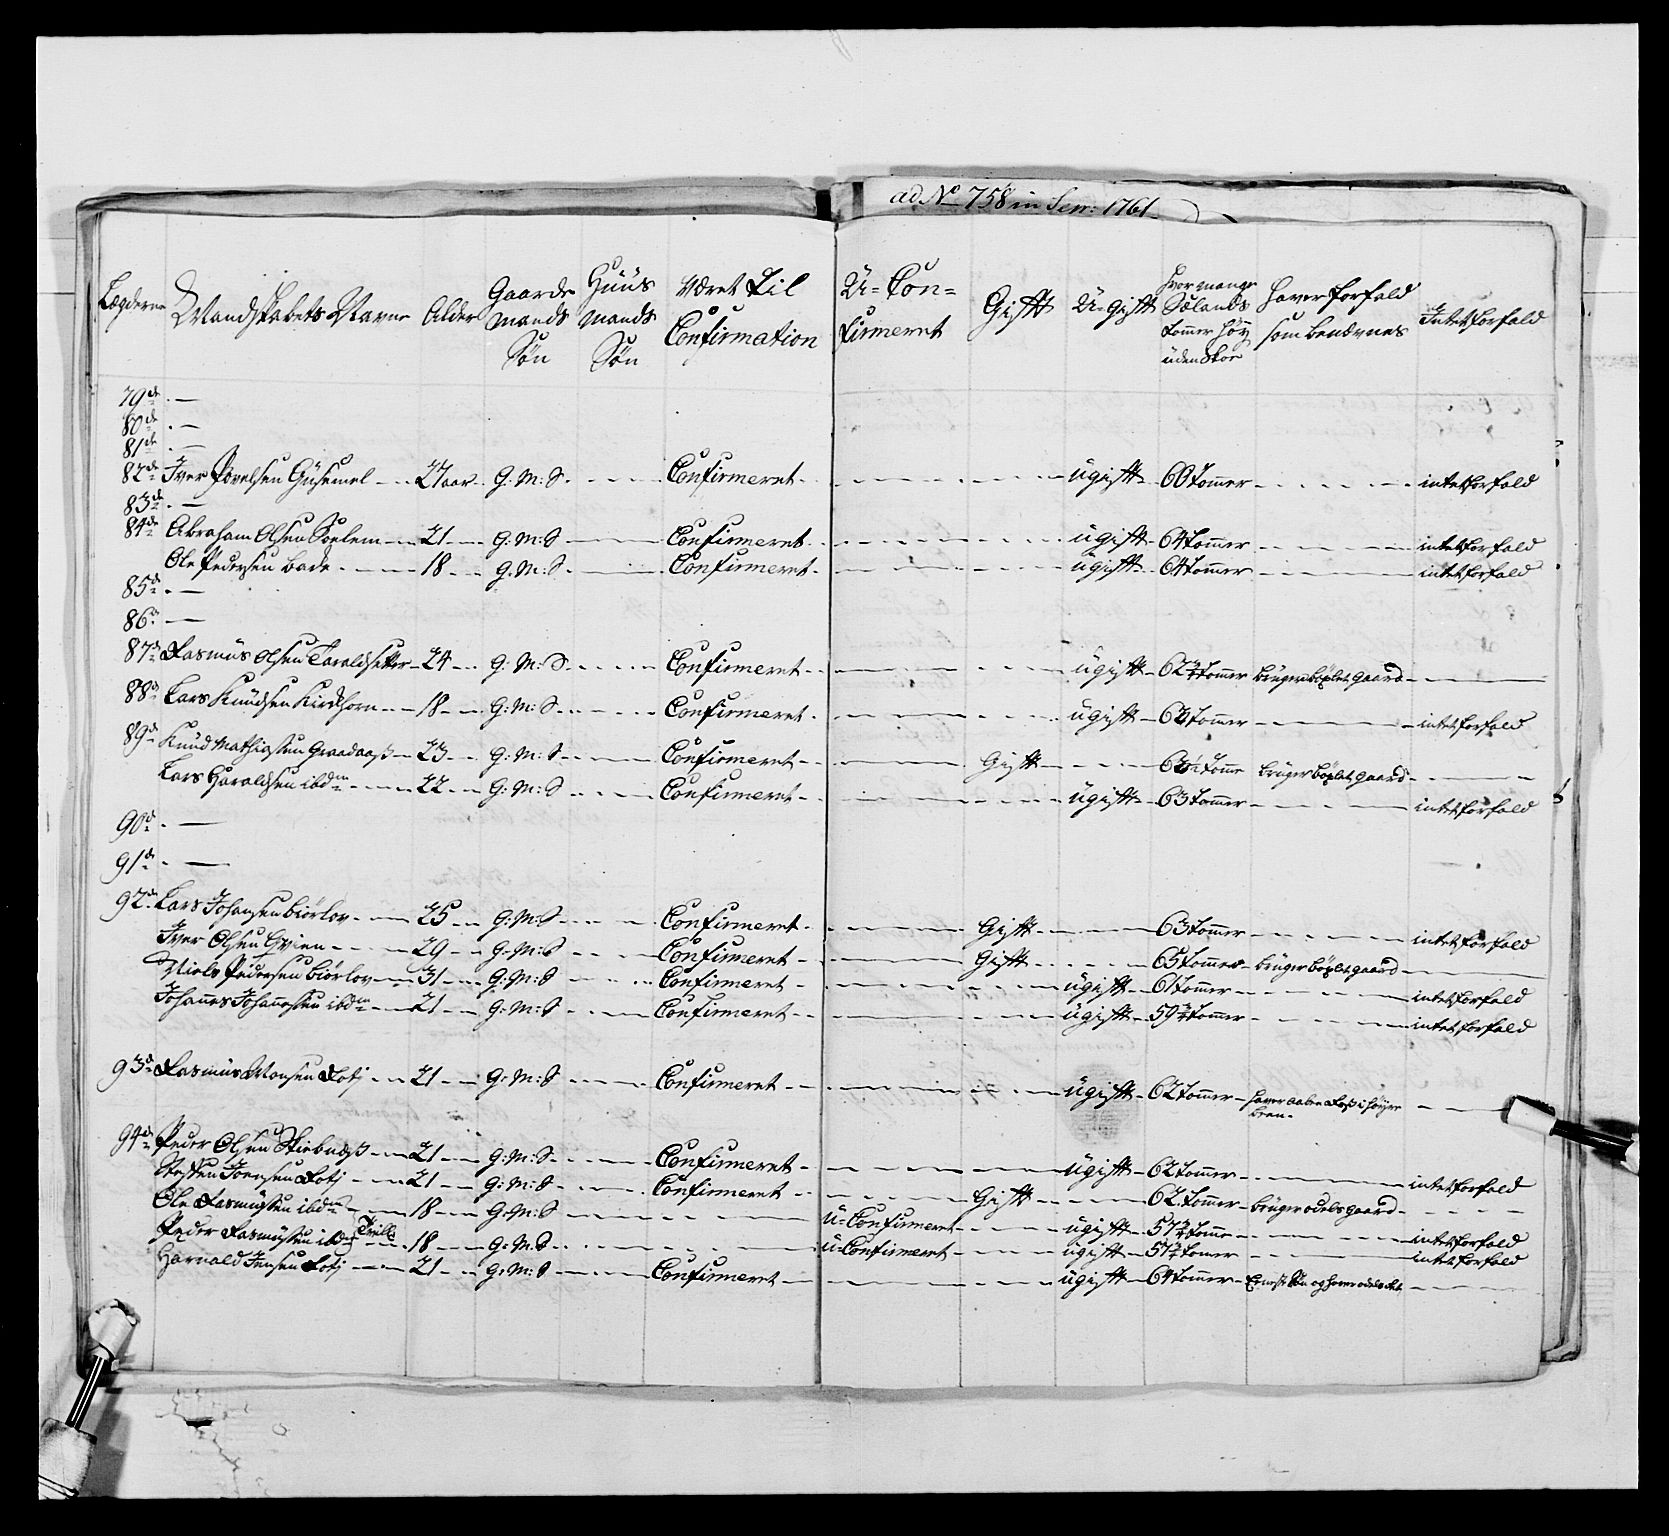 ad No 758 in Sen: 1761
Lægderne Mandskabets Navne Alder Gaardmands Søn Huusmands Søn Været til Confirmation U-Confirmeret Gift U-Gift Hvor mange Sælands Tommer Høy uden Skoe Haver forfald som benævnes Intet forfald
79de
80de
81de
82de Iver Povelsen 27 aar G: M: S Confirmeret ugift 60 Tommer intet forfald
83de
84de Abraham Olsen 21 G: M: S Confirmeret ugift 64 Tommer intet forfald
Ole Pedersen Bade 18 G: M: S Confirmeret ugift 64 Tommer intet forfald
85de
86de
87de Rasmus Olsen 24 G: M: S Confirmeret ugift 62 Tommer bruger böxlet gaard
88de Lars Knudsen Kirchhorn 18 G: M: S Confirmeret ugift Tommer intet forfald
89de Knud Mathiassen 23 G: M: S Confirmeret Gift Tomme bruger böxlet gaard
Lars Haraldsen ibdm 22 G: M: S Confirmeret ugift 63 Tommer intet forfald
90de
91de
92de Lars Johansen Biörlov 25 G: M: S Confirmeret Gift 63 Tommer intet forfald
Iver Olsen 29 G: M: S Confirmeret Gift 65 Tommer bruger böxlet gaard
Niels Pedersen Biörlov 31 G: M: S Confirmeret ugift 61 Tommer intet forfald
Johannes Johannessen ibdm 21 G: M: S Confirmeret ugift 59 Tommer intet forfald
93de Rasmus Monsen 21 G: M: S Confirmeret ugift 62 Tommer haver i høyre
been
94de Peder Olsen 21 G: M: S Confirmeret ugift 62 Tommer intet forfald
Steffen 21 G: M: S Confirmeret Gift 62 Tommer bruger odels gaard
Ole Rasmussen ibdm 18 G: M: S U-Confirmeret ugift 57 Tomme intet forfald
Peder Rasmussen ibdm 18 G: M: S U-Confirmeret ugift 57 Tomer intet forfald
Harnald Jensen 21 G: M: S Confirmeret ugift 64 Tommer